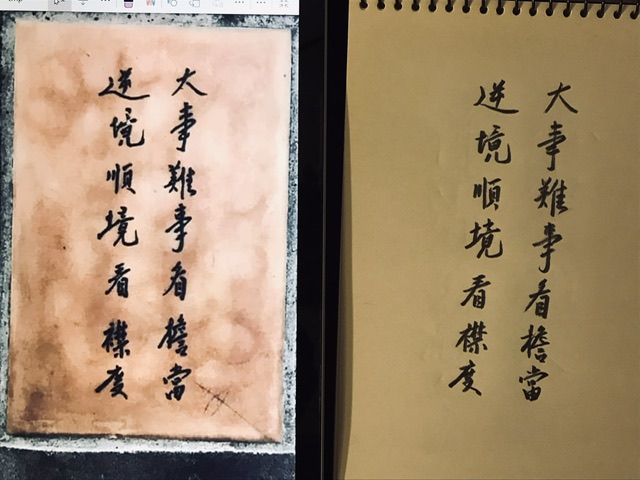 大事難事看檐當
逆境順境看襟度
大事難事看檐當
逆境順境看襟度